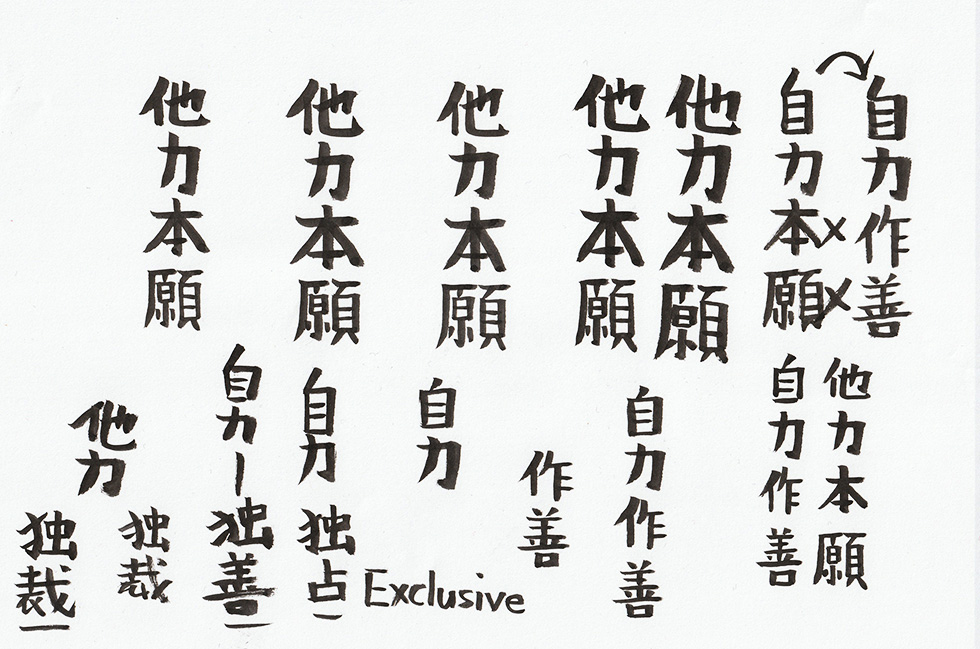 自力作善
自力本願××
他力本願
他力本願
他力本願
他力本願
他力本願
他力本願
自力作善
自力作善
作善
自力
自力
独占
Exclusive
自力ー独善
他力
独裁
独裁